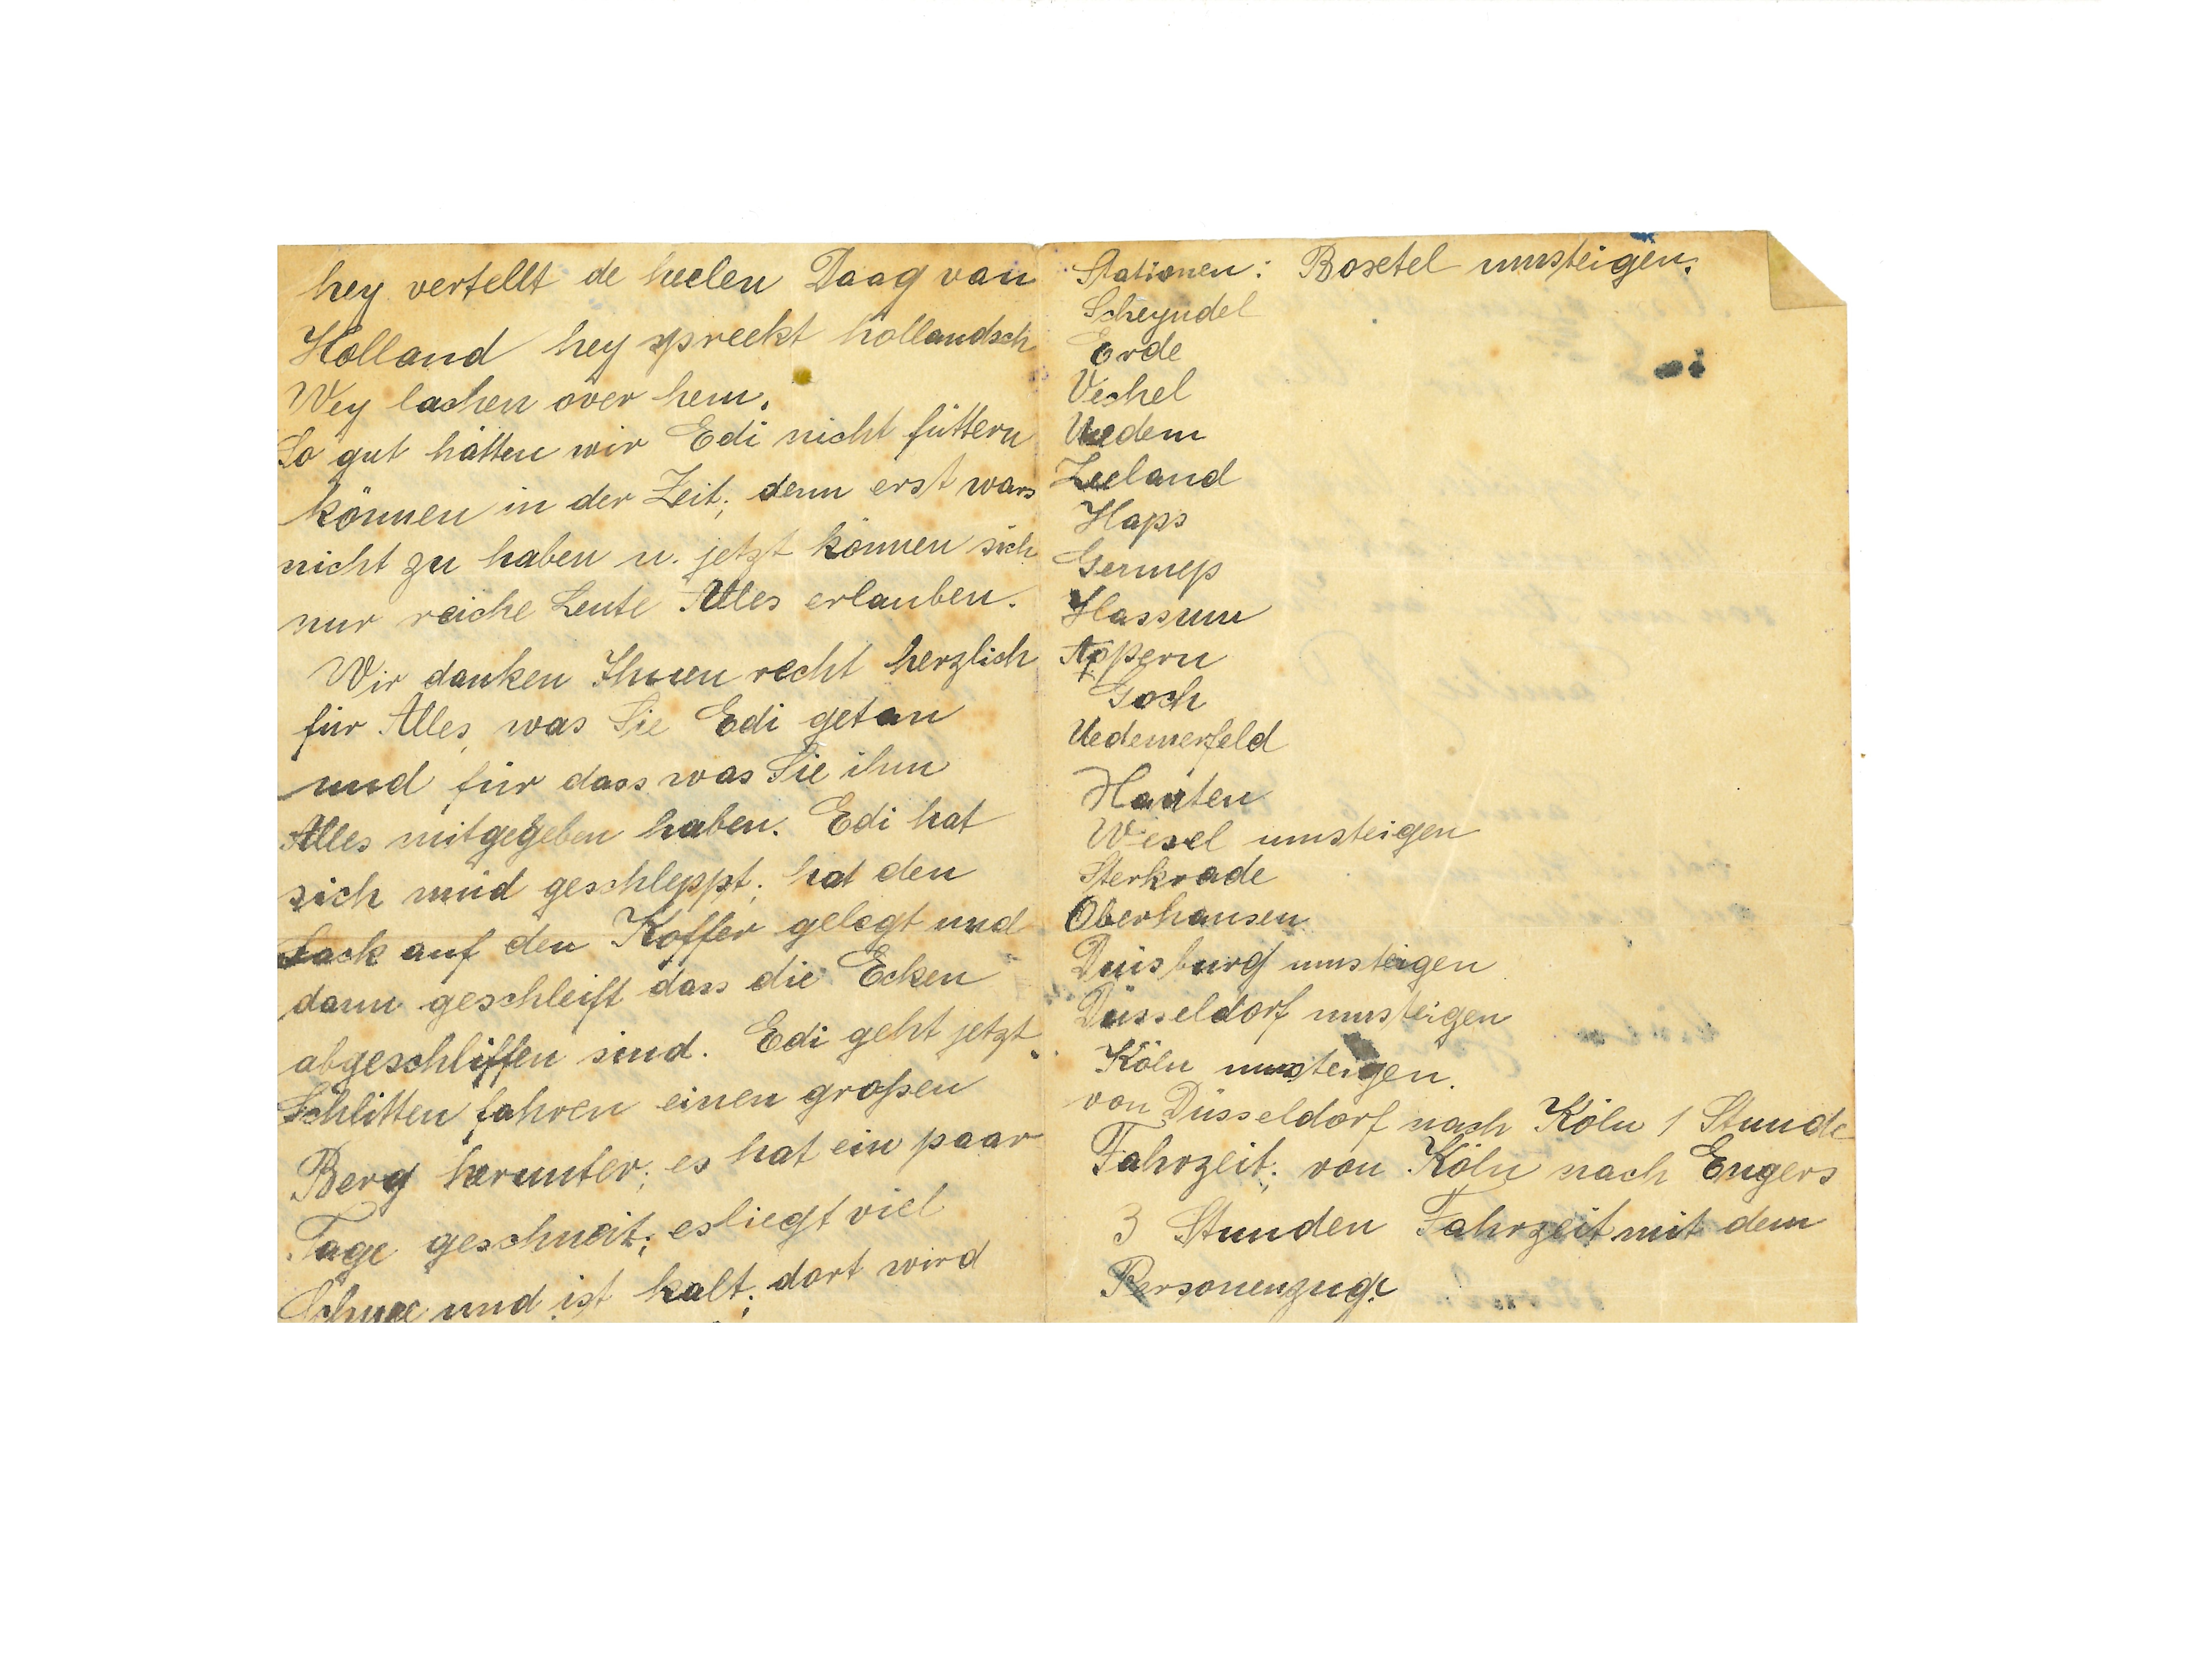 hey vertellt de heelen Daag van
Holland hey spreekt hollandsch
Wey lachen over hem.
So gut hätten wir Edi nicht füttern
können in der Zeit; denn erst wars
nicht zu haben u. jetzt können sich
nur reiche Leute Alles erlauben.
Wir danken Ihnen recht herzlich
für Alles, was Sie Edi getan
und für dass was Sie ihm
Alles mitgegeben haben. Edi hat
sich müd geschleppt; hat den
Sack auf den Koffer gelegt und
dann geschleift dass die Ecken
abgeschliffen sind. Edi geht jetzt
Schlitten fahren einen großen
Berg herunter; es hat ein paar
Tage geschneit; es liegt viel
Schnee und ist kalt; dort wird
Stationen: Boxtel umsteigen.
Scheyndel
Erde
Vechel
Uedem
Zeeland
Haps
Gennep
Hassum
Appern
Goch
Uedemerfeld
Xanten
Wesel umsteigen
Sterkrade
Oberhausen
Duisburg umsteigen
Düsseldorf umsteigen
Köln umsteigen.
von Düsseldorf nach Köln 1 Stunde
Fahrzeit; von Köln nach Engers
3 Stunden Fahrzeit mit dem
Personenzuge